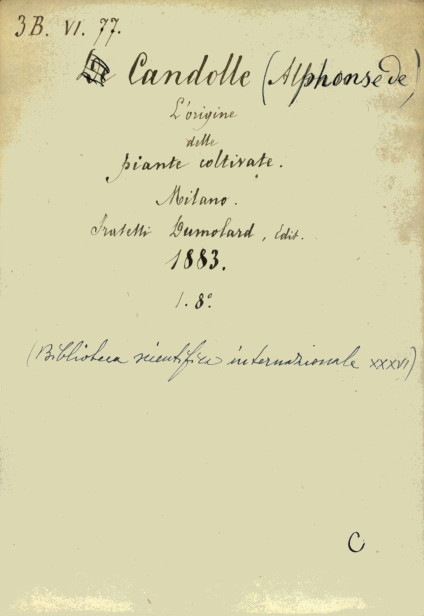 3B. VI. 77.
Candolle (Alphonse de)
L'origine
delle
piante coltivate.
Milano.
Fratelli Dumolard, Edit.
1883.
1. 8°.
(Biblioteca scientifica internazionale XXXVI)
C